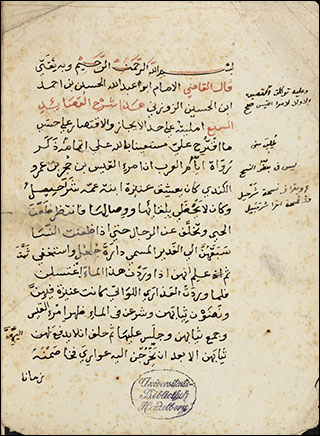 بسم الله الرحمن الرحيم وبه ثقتي
قال القاضي الامام ابو عبد الله الحسين بن احمد
ابن الحسين الزوزني هذا شرح القصائد
السبع امليته على حد الايجاز والاقتصار على حسب
ما اقترح علي مستعينا بالله على اتمامه ذكر
رواة ايام العرب ان امرء القيس بن حجر بن عمرو
الكندي كان يعشق عنيزة ابنة عمه شرحبيل
وكان لا يحظى بلقائها ووصالها فانتظر ظعن
الحي وتخلف عن الرجال حتى اذا ظعنت النسا
سبقهن الى الغدير المسمى دارة جلجل واستخفى ثمة
ثم اذ علم انهن اذا وردن هذا الماء اغتسلن
فلما وردت العذارى اللواتي كانت عنيزة فيهن
ونضون ثيابهن وشرعن في الماء ظهر امرء القيس
وجمع ثيابهن وجلس عليها ثم حلف ان لا يدفع لهن
ثيابهن الا بعد ان يخرجن اليه عواري فخاصمنه
زمانا
ليس في بعض النسخ
Universitäts-
Bibliothek
Heidelberg